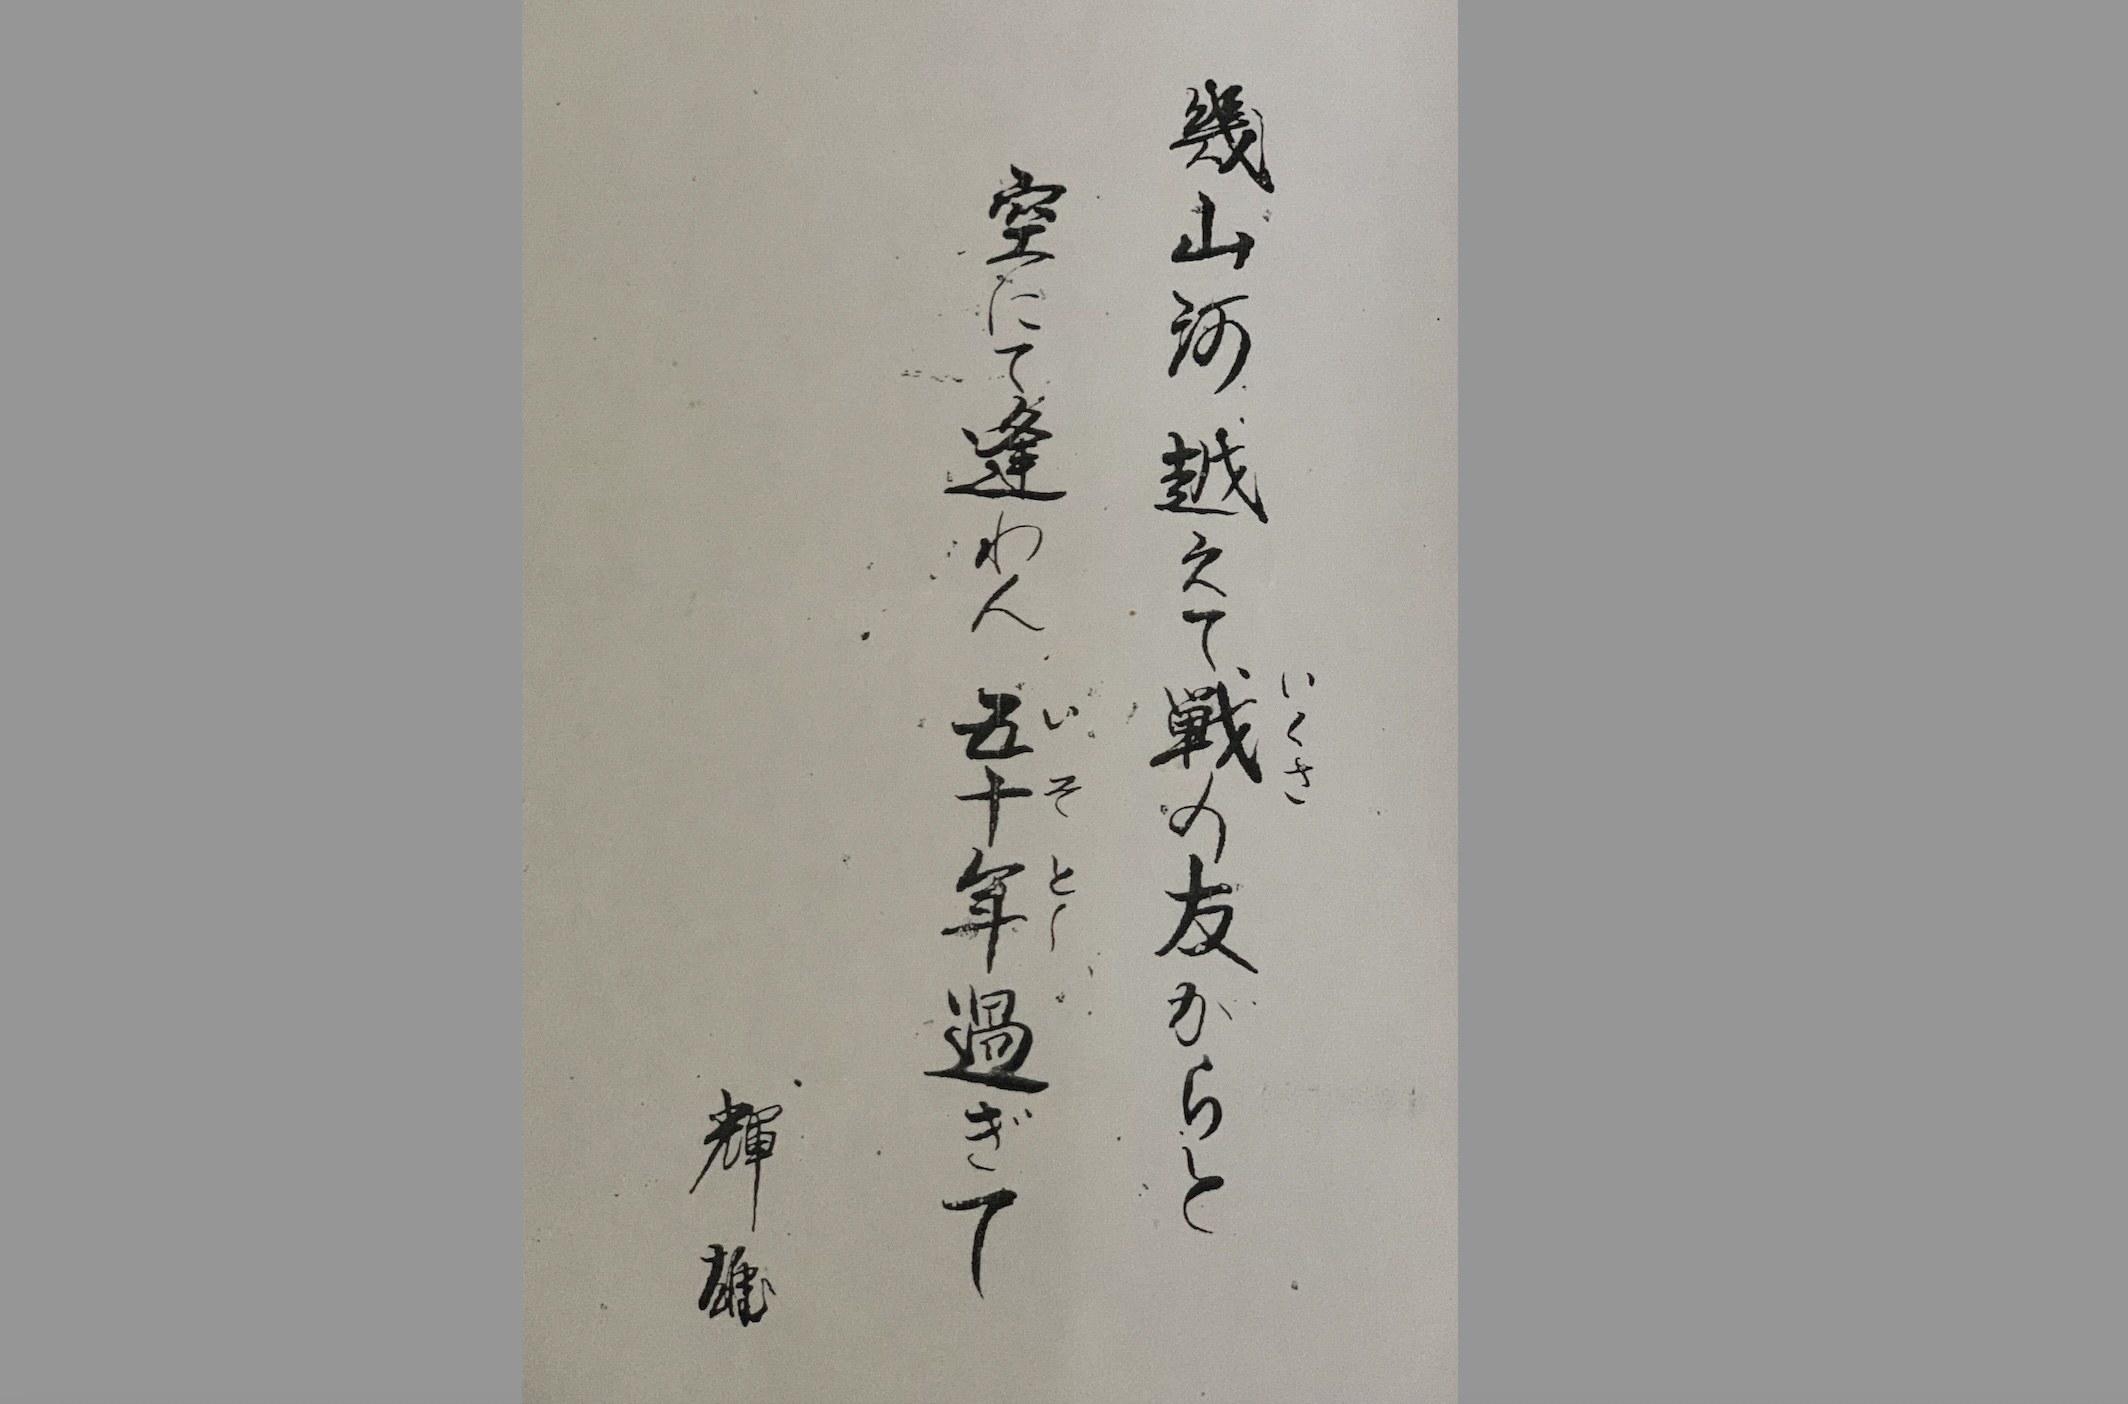 幾山河越えて戦の友がらと
いくさ
空にて逢わん五十年過ぎて
いそとし
輝雄